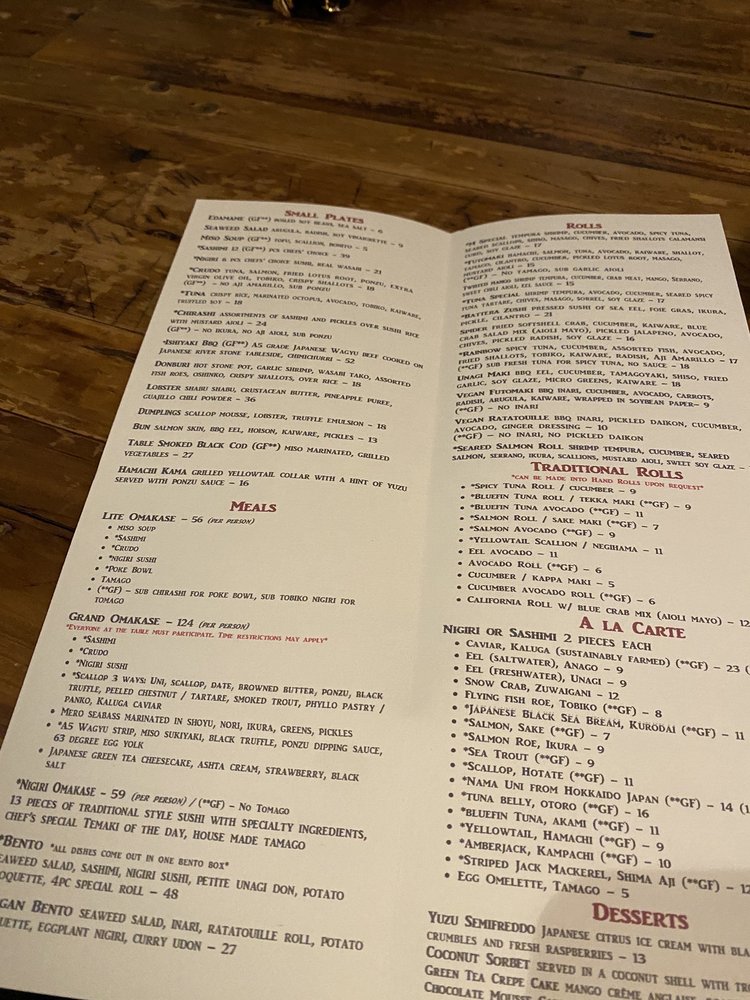 Small Plates
Edamame (GF**) boiled soy beans, sea salt – 6
Seaweed Salad arugula, radish, soy vinaigrette – 9
Miso Soup (GF**) tofu, scallion, bonito – 5
*Sashimi 12 (GF**) pcs chefs' choice – 39
*Nigiri 6 pcs chefs' choice sushi, real wasabi – 21
*Crudo tuna, salmon, fried lotus root, ponzu, extra
virgin olive oil, tobiko, crispy shallots – 18
(GF**) – no aji amarillo, sub ponzu
*Tuna crispy rice, marinated octopus, avocado, tobiko, kaiware,
truffled soy – 18
*Chirashi assortments of sashimi and pickles over sushi rice
with mustard aioli – 24
(GF**) – no ikura, no aji aioli, sub ponzu
*Ishiyaki BBQ (GF**) A5 grade Japanese Wagyu beef cooked on
Japanese river stone tableside, chimichurri – 52
Donburi hot stone pot, garlic shrimp, wasabi tako, assorted
fish roes, oshinko, crispy shallots, over rice – 18
Lobster shabu shabu, crustacean butter, pineapple puree,
guajillo chili powder – 36
Dumplings scallop mousse, lobster, truffle emulsion – 18
Bun salmon skin, bbq eel, hoison, kaiware, pickles – 13
Table Smoked Black Cod (GF**) miso marinated, grilled
vegetables – 27
Hamachi Kama grilled yellowtail collar with a hint of yuzu
served with ponzu sauce – 16
Meals
Lite Omakase – 56 (per person)
• miso soup
• *Sashimi
• *Crudo
• *nigiri sushi
• *Poke Bowl
• Tamago
• (**GF) – sub chirashi for poke bowl, sub tobiko nigiri for
tomago
Grand Omakase – 124 (per person)
*Everyone at the table must participate. Time restrictions may apply*
• *Sashimi
• *Crudo
• *Nigiri sushi
• *Scallop 3 ways: Uni, scallop, date, browned butter, ponzu, black
truffle, peeled chestnut / tartare, smoked trout, phyllo pastry /
panko, Kaluga caviar
• Mero seabass marinated in shoyu, nori, ikura, greens, pickles
• *A5 Wagyu strip, miso sukiyaki, black truffle, ponzu dipping sauce,
63 degree egg yolk
• Japanese green tea cheesecake, ashta cream, strawberry, black
salt
*Nigiri Omakase – 59 (per person) / (**GF) – No Tomago
13 pieces of traditional style sushi with specialty ingredients,
chef's special Temaki of the day, house made tamago
*Bento *all dishes come out in one bento box*
seaweed salad, sashimi, nigiri sushi, petite unagi don, potato
oquette, 4pc special roll – 48
gan Bento seaweed salad, inari, ratatouille roll, potato
uette, eggplant nigiri, curry udon – 27
Rolls
*M Special tempura shrimp, cucumber, avocado, spicy tuna,
seared scallops, shiso, masago, chives, fried shallots calamansi
corn, soy glaze – 17
*Futomaki hamachi, salmon, tuna, avocado, kaiware, shallot,
tamago, cilantro, cucumber, pickled lotus root, masago,
mustard aioli – 15
(**GF) – no tamago, sub garlic aioli
Twisted mango shrimp tempura, cucumber, crab meat, mango, serrano,
sweet chili aioli, eel sauce – 15
*Tuna Special shrimp tempura, avocado, cucumber, seared spicy
tuna tartare, chives, masago, sorrel, soy glaze – 17
*Battera Zushi pressed sushi of sea eel, foie gras, ikura,
pickle, cilantro – 21
Spider fried softshell crab, cucumber, kaiware, blue
crab salad mix (aioli mayo), pickled jalapeno, avocado,
chives, pickled radish, soy glaze – 16
*Rainbow spicy tuna, cucumber, assorted fish, avocado,
fried shallots, tobiko, kaiware, radish, Aji Amarillo – 17
(**GF sub fresh tuna for spicy tuna, no sauce – 18
Unagi Maki bbq eel, cucumber, tamagoyaki, shiso, fried
garlic, soy glaze, micro greens, kaiware – 18
Vegan Futomaki bbq inari, cucumber, avocado, carrots,
radish, arugula, kaiware, wrapped in soybean paper– 9
(**GF) – no inari
Vegan Ratatouille bbq inari, pickled daikon, cucumber,
avocado, ginger dressing – 10
(**GF) – no inari, no pickled daikon
*Seared Salmon Roll shrimp tempura, cucumber, seared
salmon, serrano, ikura, scallions, mustard aioli, sweet soy glaze –
Traditional Rolls
*can be made into Hand Rolls upon request*
• *Spicy Tuna Roll / cucumber – 9
• *Bluefin Tuna roll / tekka maki (**GF) – 9
• *Bluefin Tuna avocado (**GF) – 11
• *Salmon Roll / sake maki (**GF) – 7
• *Salmon Avocado (**GF) – 9
• *Yellowtail Scallion / negihama – 11
• Eel avocado – 11
• Avocado Roll (**GF) – 6
• Cucumber / kappa maki – 5
• Cucumber avocado roll (**GF) – 6
• California Roll w/ blue crab mix (aioli mayo) – 12
A la Carte
Nigiri or Sashimi 2 pieces each
• Caviar, Kaluga (sustainably farmed) (**GF) – 23 (
• Eel (saltwater), Anago – 9
• Eel (freshwater), Unagi – 9
• Snow Crab, Zuwaigani – 12
• Flying fish roe, Tobiko (**GF) – 8
• *Japanese Black Sea Bream, Kurodai (**GF) – 11
• *Salmon, Sake (**GF) – 7
• *Salmon Roe, Ikura – 9
• *Sea Trout (**GF) – 9
• *Scallop, Hotate (**GF) – 11
• *Nama Uni from Hokkaido Japan (**GF) – 14 (1
• *tuna belly, otoro (**GF) – 16
• *bluefin Tuna, akami (**GF) – 11
• *Yellowtail, Hamachi (**GF) – 9
• *Amberjack, Kampachi (**GF) – 10
• *Striped Jack Mackerel, Shima Aji (**GF) – 12
• Egg Omelette, Tamago – 5
Desserts
Yuzu Semifreddo Japanese citrus ice cream with bla
crumbles and fresh raspberries – 13
Coconut Sorbet served in a coconut shell with tr
Green Tea Crepe Cake mango crème anglaise
Chocolate Mousse